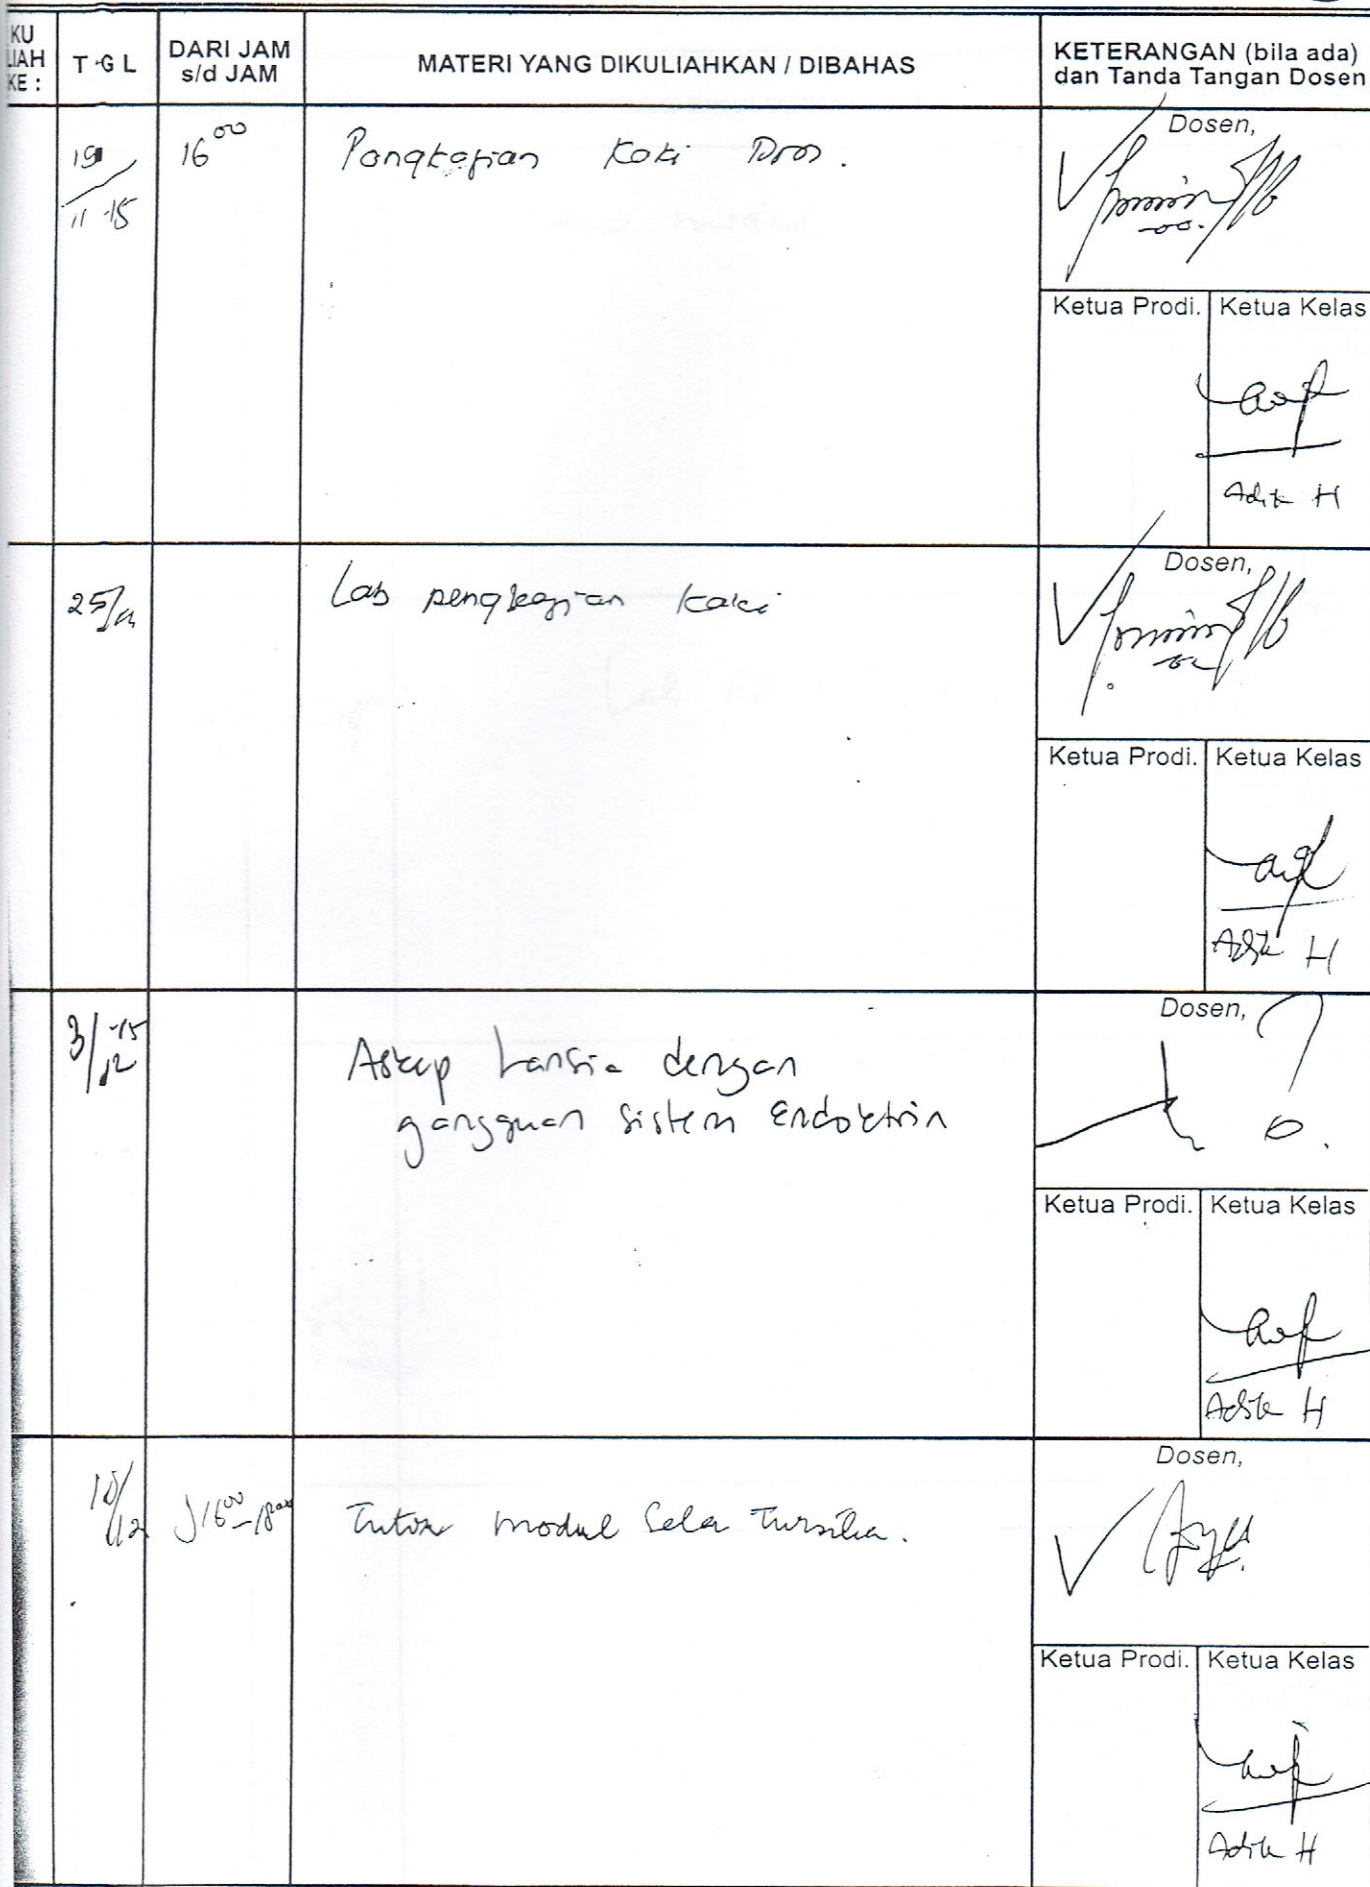 KU
LIAH
KE :
TGL
DARI JAM
s/d JAM
MATERI YANG DIKULIAHKAN / DIBAHAS
KETERANGAN (bila ada)
dan Tanda Tangan Dosen
19/11-15
16.00
Pengkajian Kaki
Dosen,
Ketua Prodi.
Ketua Kelas
Adita H
25/11
Lab pengkajian kaki
Dosen,
Ketua Prodi.
Ketua Kelas
Adita H
3/12-15
Askep Lansia dengan
gangguan Sistem Endokrin
Dosen,
Ketua Prodi.
Ketua Kelas
Adita H
10/12
16.00-18.00
Tutor modul Sela Tursika.
Dosen,
Ketua Prodi.
Ketua Kelas
Adita H